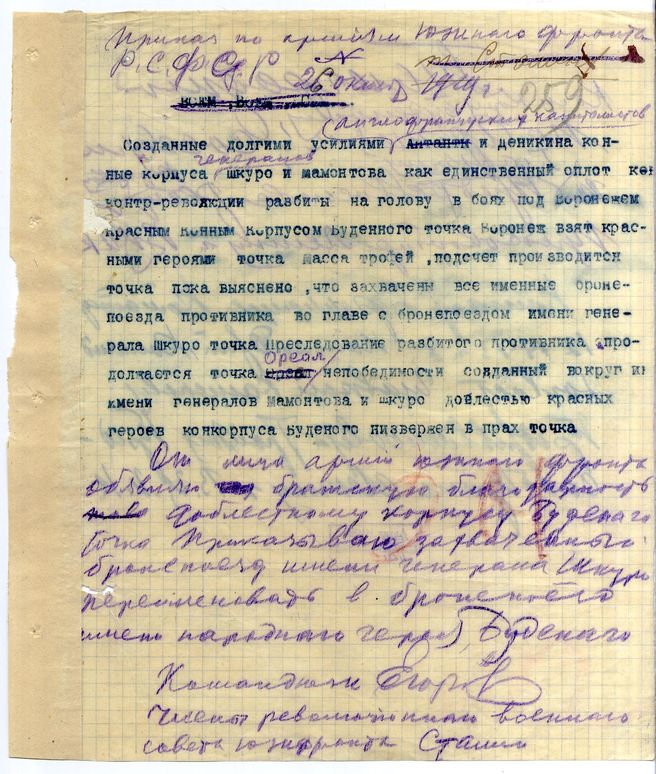 Приказ по армиям Южного фронта
Р.С.Ф.С.Р. №
26 октября 1919.
259
всем, всем
англофранцузских капиталистов
Созданные долгими усилиями Антанты и Деникина кон-
генералов
ные корпуса Шкуро и Мамонтова как единственный оплот
контр-революции разбиты на голову в боях под Воронежем
Красным Конным Корпусом Буденного точка Воронеж взят крас-
ными героями точка Масса трофей ,подсчет производится
точка пока выяснено ,что захвачены все именные броне-
поезда противника во главе с бронепоездом имени гене-
рала Шкуро точка Преследование разбитого противника про-
Ореал
должается точка Ореал непобедимости созданный вокруг
имени генералов Мамонтова и Шкуро доблестью красных
героев конкорпуса Буденого низвержен в прах точка
От лица армий южного фронта
объявляю братскую благодарность
доблестному корпусу Буденаго
точка Приказываю захваченный
бронепоезд имени генерала Шкуро
переименовать в бронепоезд
имени народнаго героя Буденаго
Командюж Егоров
Член революционнаго военнаго
совета южфронта Сталин